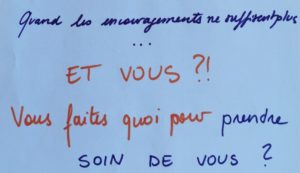 Quand les encouragements ne suffisent plus
...
ET VOUS ?!
Vous faites quoi pour prendre
SOIN DE VOUS ?